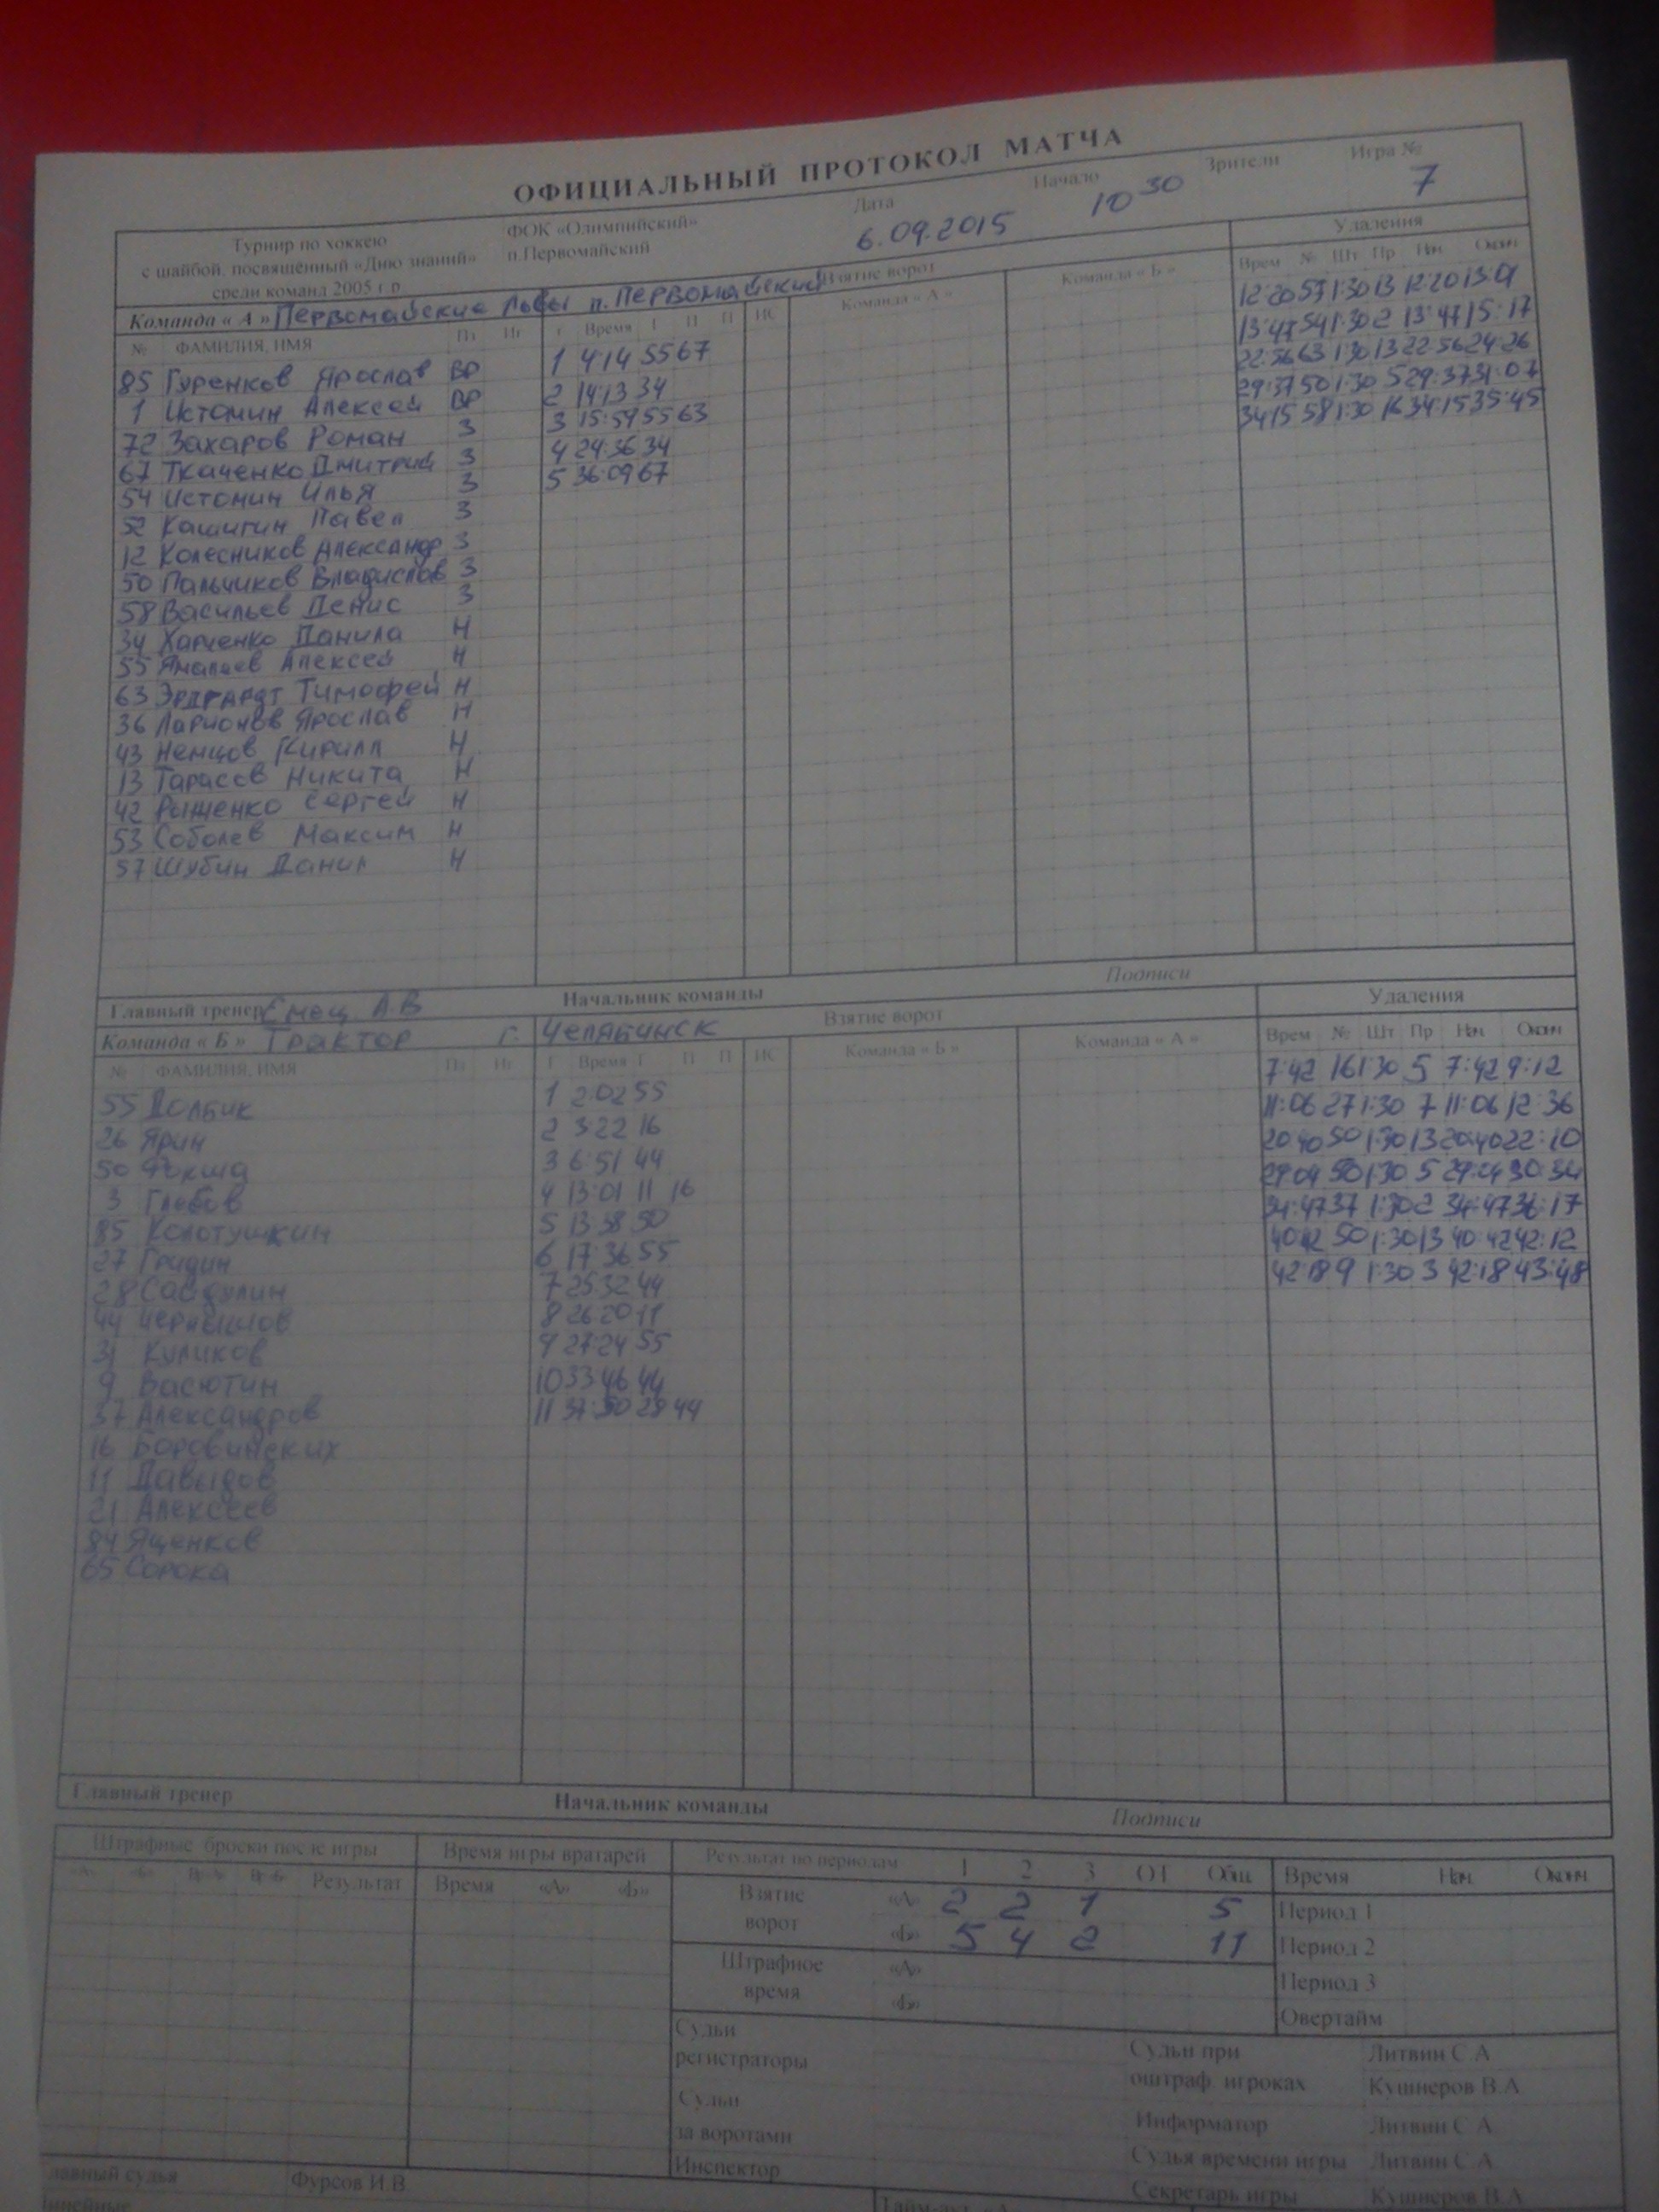 ОФИЦИАЛЬНЫЙ ПРОТОКОЛ МАТЧА
Турнир по хоккею
с шайбой, посвященный «Дню знаний»
среди команд 2005 г.р.
ФОК «Олимпийский»
п.Первомайский
Дата
6.09.2015
Начало
10 30
Зрители
Игра №
7
Команда « А » Первомайские Львы п. Первомайский
Взятие ворот
Удаления
№ ФАМИЛИЯ, ИМЯ Пз Иг Г Время Г П П ИС Команда « А » Команда « Б » Врем № Шт Пр Нач Оконч
85 Гуренков Ярослав ВР 1 4:14 55 67 12:20 57 1:30 13 12:20
1 Истомин Алексей ВР 2 14:13 34 13:47 54 1:30 2 13:47 15:17
72 Захаров Роман З 3 15:59 55 63 22:56 63 1:30 13 22:56 24:26
67 Ткаченко Дмитрий З 4 24:36 34 29:37 50 1:30 5 29:37 31:07
54 Истомин Илья З 5 36:09 67 34:15 58 1:30 16 34:15 35:45
52 Кашигин Павел З
12 Колесников Александр З
50 Пальчиков Владислав З
58 Васильев Денис З
34 Харченко Данила Н
55 Алексей Н
63 Эрдгардт Тимофей Н
36 Ларионов Ярослав Н
43 Немцов Кирилл Н
13 Тарасов Никита Н
42 Рыженко Сергей Н
53 Соболев Максим Н
57 Шубин Данил Н
Главный тренер Емец А.В Начальник команды Подписи
Команда « Б » Трактор г. Челябинск Взятие ворот Удаления
№ ФАМИЛИЯ, ИМЯ Пз Иг Г Время Г П П ИС Команда « Б » Команда « А » Врем № Шт Пр Нач Оконч
55 Долбик 1 2:02 55 7:42 16 1:30 5 7:42 9:12
26 Ярин 2 3:22 16 11:06 27 1:30 7 11:06 12:36
50 Фокша 3 6:51 44 20:40 50 1:30 13 20:40 22:10
3 Глебов 4 13:01 11 16 29:04 50 1:30 5 29:04 30:34
85 Колотушкин 5 13:58 50 34:47 37 1:30 2 34:47 36:17
27 Градин 6 17:36 55 40:42 50 1:30 13 40:42 42:12
28 7 25:32 44 42:18 9 1:30 3 42:18 43:48
44 Чернышов 8 26:20 11
31 Куликов 9 27:24 55
9 Васютин 10 33:46 44
37 Александров 11 37:50 28 44
16 Боровинских
11 Давыдов
21 Алексеев
84 Ященков
65 Сорока
Главный тренер Начальник команды Подписи
Штрафные броски после игры Время игры вратарей Результат по периодам 1 2 3 ОТ Общ Время Нач Оконч
«А» «Б» Вр«А» Вр«Б» Результат Время «А» «Б» Взятие ворот «А» 2 2 1 5 Период 1
«Б» 5 4 2 11 Период 2
Штрафное время «А» Период 3
«Б» Овертайм
Судьи регистраторы Судьи при оштраф. игроках Литвин С.А.
Кушнеров В.А.
Судьи за воротами Информатор Литвин С.А.
Судья времени игры Литвин С.А.
Инспектор Секретарь игры Кушнеров В.А.
главный судья Фурсов И.В.